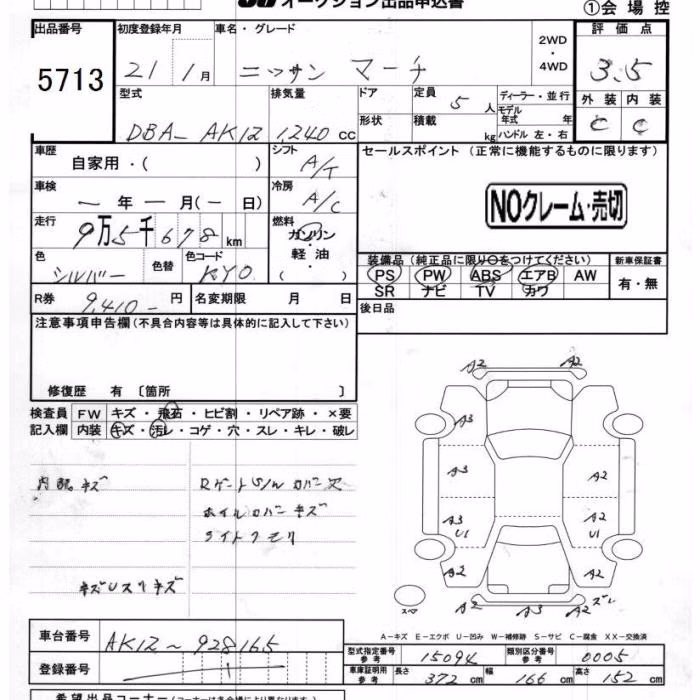 オークション出品申込書
①会場控
出品番号
5713
初度登録年月
21 1月
車名・グレード
ニッサン マーチ
2WD
・
4WD
評価点
3.5
型式
DBA- AK12
排気量
1,240 cc
ドア
形状
定員
5人
積載
kg
ディーラー・並行
モデル年式 年
ハンドル 左・右
外装 内装
C C
車歴
自家用・( )
シフト
A/T
セールスポイント (正常に機能するものに限ります)
車検
— 年 — 月(— 日)
冷房
A/C
NOクレーム・売切
走行
9万5千678km
燃料
ガソリン
・
軽油
( )
色
シルバー
色替
色コード
KY0
装備品(純正品に限り○をつけてください)
PS PW ABS エアB AW
SR ナビ TV カワ
新車保証書
有・無
R券
9,410- 円
名変期限 月 日
後日品
注意事項申告欄(不具合内容等は具体的に記入して下さい)
修復歴 有〔箇所 〕
検査員
記入欄
FW キズ・飛石・ヒビ割・リペア跡・×要
内装 キズ・汚レ・コゲ・穴・スレ・キレ・破レ
内部キズ
Rゲート カバー欠
ホイルカバーキズ
ライトクモリ
キズUスリキズ
A2 A2
A3
A3 A2
A3 A2
U1 U1
A2 A2
A2 A2 ズレ
スペ
A-キズ E-エクボ U-凹み W-補修跡 S-サビ C-腐食 XX-交換済
車台番号
AK12～928165
登録番号
型式指定番号
参考
15094
類別区分番号
参考
0005
車庫証明用
参考
長さ 372 cm
幅 166 cm
高さ 152 cm
希望出品コーナー(コーナーは各会場により異なります)